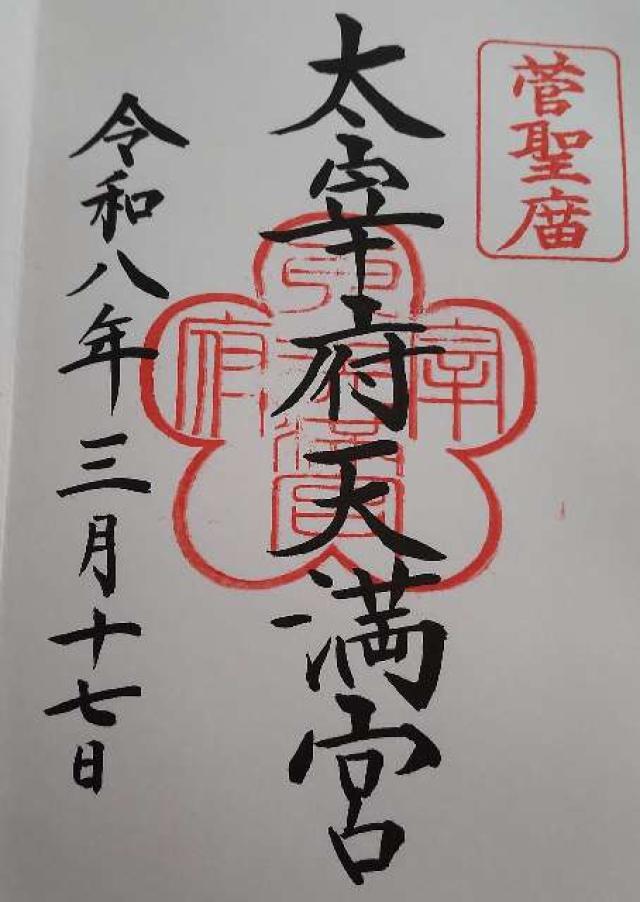 菅聖庿
太宰府天満宮
令和八年三月十七日